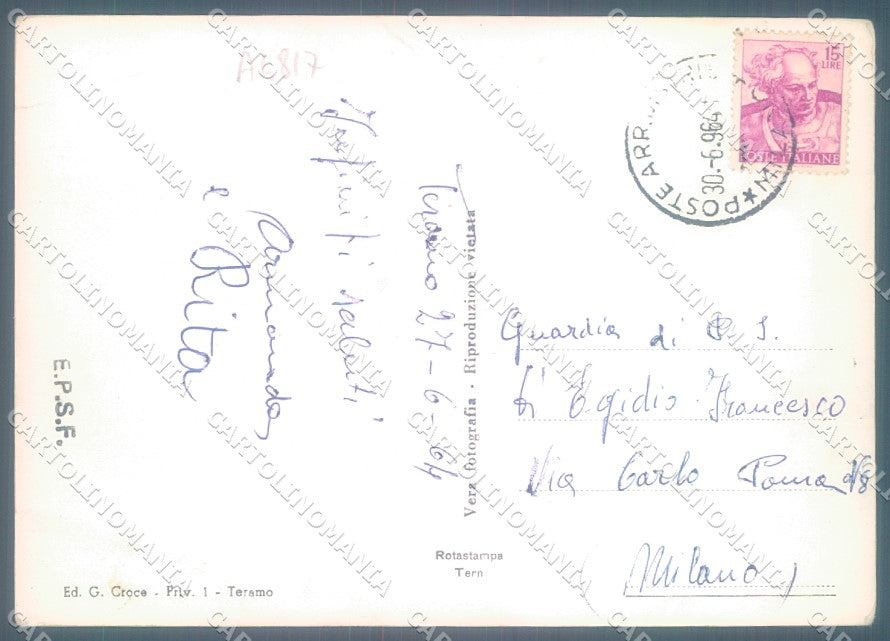 AC817
Teramo 27-6-64
Infiniti saluti
Armando
e Rita
E.P.S.F.
Ed. G. Croce - Priv. 1 - Teramo
Vera fotografia - Riproduzione vietata
Rotastampa
Tern
15
LIRE
POSTE ITALIANE
POSTE ARR.
MILANO
30.-6.964
Guardia di P. S.
D' Egidio Francesco
Via Carlo Poma
Milano
CARTOLINOMANIA